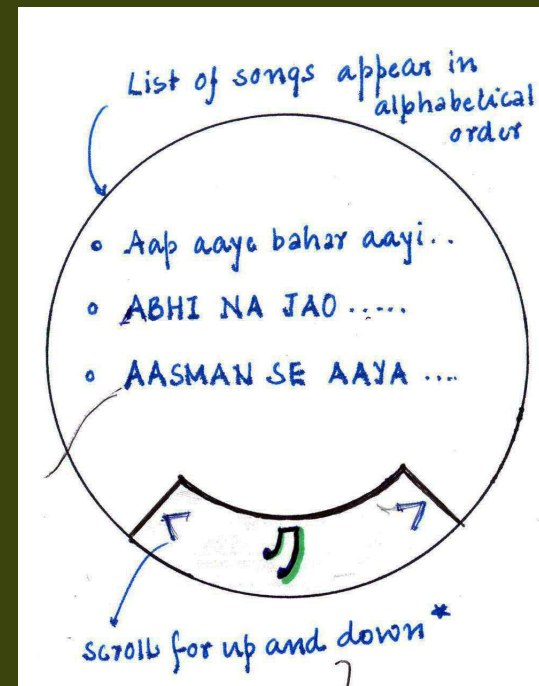 List of songs appear in
alphabetical
order
Aap aaye bahar aayi..
ABHI NA JAO .....
AASMAN SE AAYA ....
scroll for up and down*